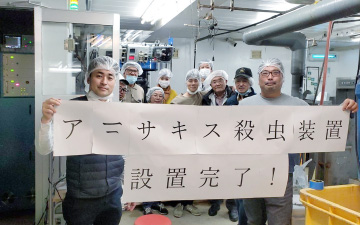 アニサキス殺虫装置
設置完了!